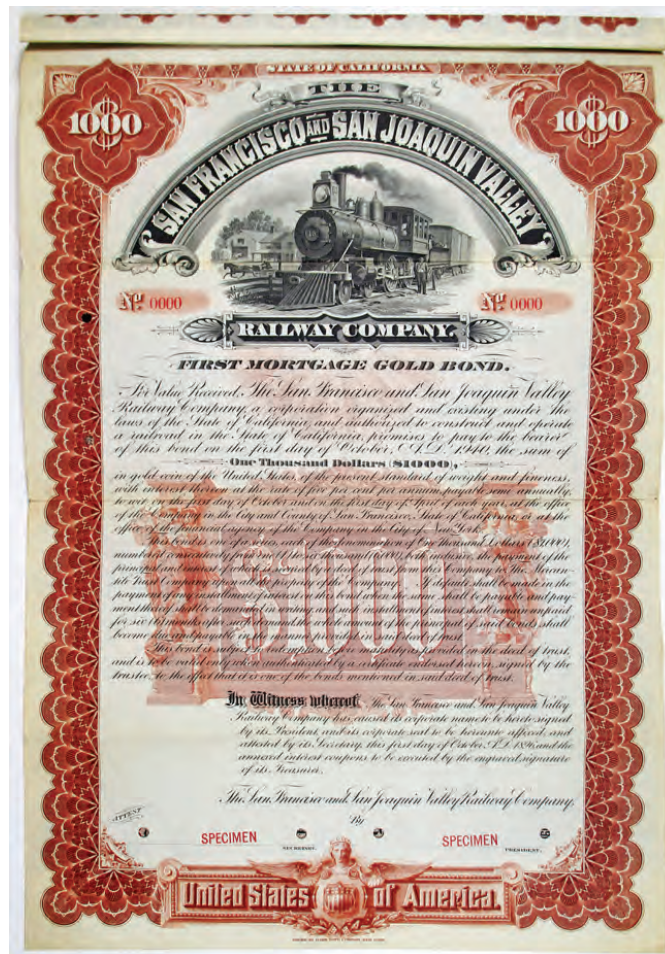 STATE OF CALIFORNIA
1000 THE 1000
SAN FRANCISCO AND SAN JOAQUIN VALLEY
No. 0000 No. 0000
RAILWAY COMPANY.
FIRST MORTGAGE GOLD BOND.
For Value Received, The San Francisco and San Joaquin Valley
Railway Company, a corporation organized and existing under the
laws of the State of California, and authorized to construct and operate
a railroad in the State of California, promises to pay to the bearer
of this bond on the first day of October, A.D. 1940, the sum of
One Thousand Dollars ($1000),
in gold coin of the United States, of the present standard of weight and fineness,
with interest thereon at the rate of five per cent per annum, payable semi annually,
to wit on the first day of October and on the first day of April of each year, at the office
of the Company in the City and County of San Francisco, State of California, or at the
office of the financial agency of the Company in the City of New York.
This bond is one of a series each of the denomination of One Thousand Dollars ($1000),
numbered consecutively from one (1) to six thousand (6000), both inclusive, the payment of the
principal and interest of which is secured by a deed of trust of the Company to The Mercan-
tile Trust Company upon all the property of the Company. If default shall be made in the
payment of any installment of interest on this bond when the same shall be payable and pay-
ment thereof shall be demanded in writing and such installment of interest shall remain unpaid
for six months after such demand the whole amount of the principal of said bonds shall
become due and payable
This bond is subject to redemption before maturity as provided in the deed of trust,
and is to be valid only when authenticated by a certificate endorsed hereon, signed by the
trustee, to the effect that it is one of the bonds mentioned in said deed of trust.
In Witness whereof, The San Francisco and San Joaquin Valley
Railway Company has caused its corporate name to be hereto signed
by its President, and its corporate seal to be hereunto affixed, and
attested by its Secretary, this first day of October, A.D. 1896, and the
annexed interest coupons to be executed by the engraved signature
of its Treasurer.
The San Francisco and San Joaquin Valley Railway Company,
ATTEST By
SPECIMEN SPECIMEN
SECRETARY. PRESIDENT.
$1000
United States of America.